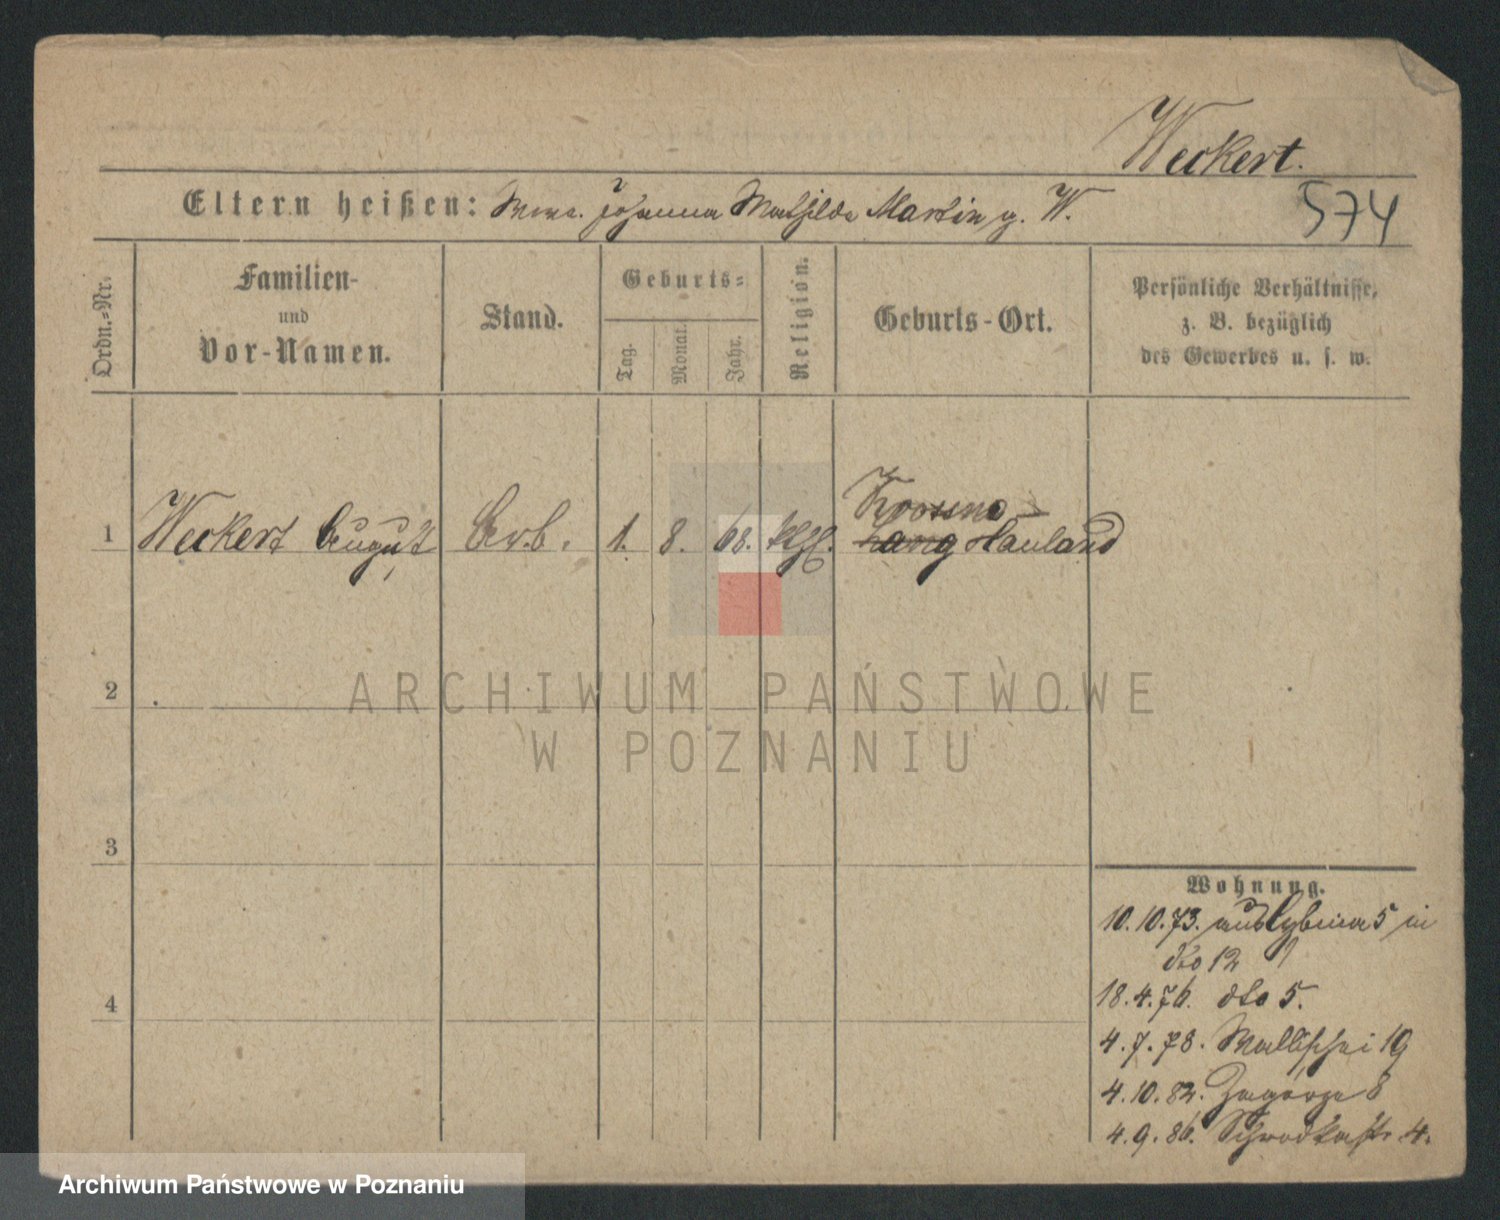 Weckert.
574
Eltern heißen: Johanna Mathilde Martin g. W.
Ordn.-Nr.
Familien-
und
Vor-Namen.
Stand.
Geburts-
Tag.
Monat.
Jahr.
Religion.
Geburts-Ort.
Persönliche Verhältnisse,
z. B. bezüglich
des Gewerbes u. s. w.
Krossno
1 Weckert August Arb. 1. 8. 68. Hauland
2
3
4
ARCHIWUM PAŃSTWOWE
W POZNANIU
Wohnung.
10.10.73. aus Cybina 5 in
dto 12
18.4.76. dto 5.
4.7.78. Wallischei 19
4.10.82. Zagorze 8
4.9.86. Schrodkastr 4.
Archiwum Państwowe w Poznaniu